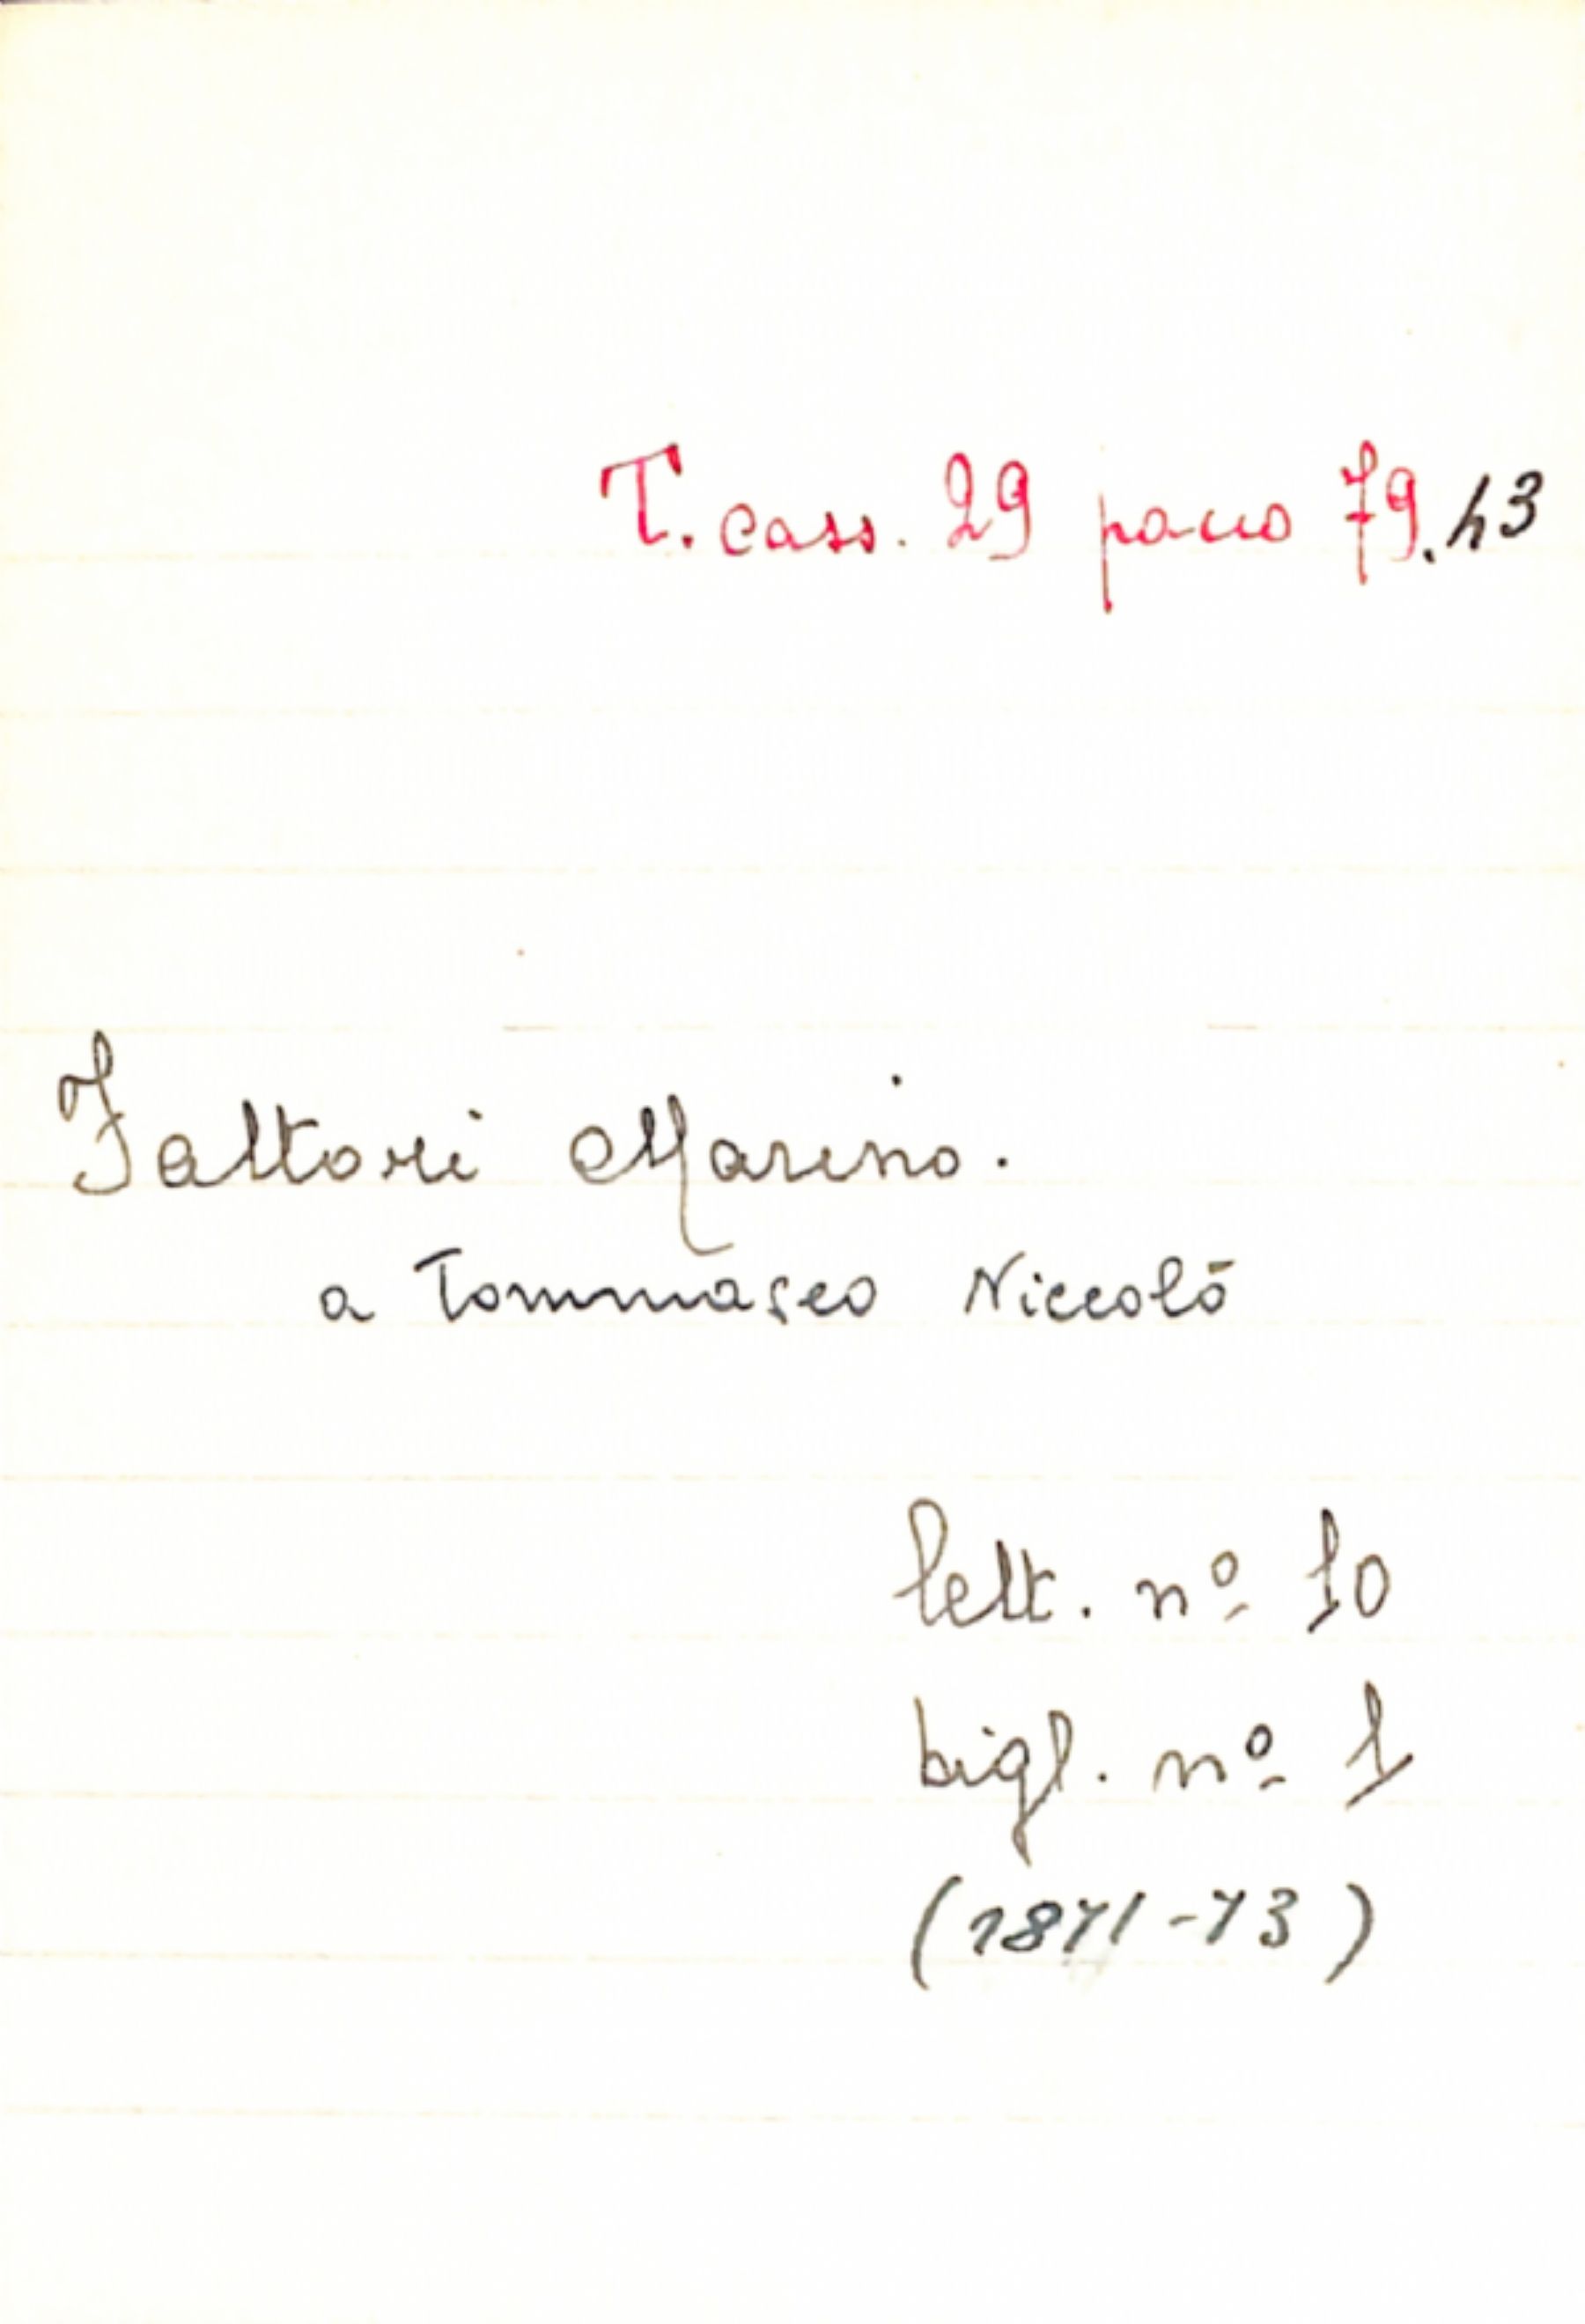 T. cass. 29 pacco 79.43
Fattori Marino.
a Tommaseo Niccolò
lett. nº 10
bigl. nº 1
(1871-73)